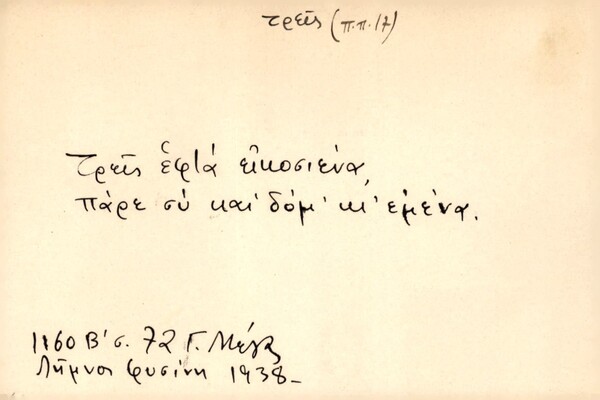 τρεῖς (π.π. 17)
Τρεῖς ἑφτά εἰκοσιένα,
πάρε σύ καί δόμ' κι' ἐμένα.
1160 Β' σ. 72 Γ. Μέγα
Λῆμνος Φυσίνη 1938-